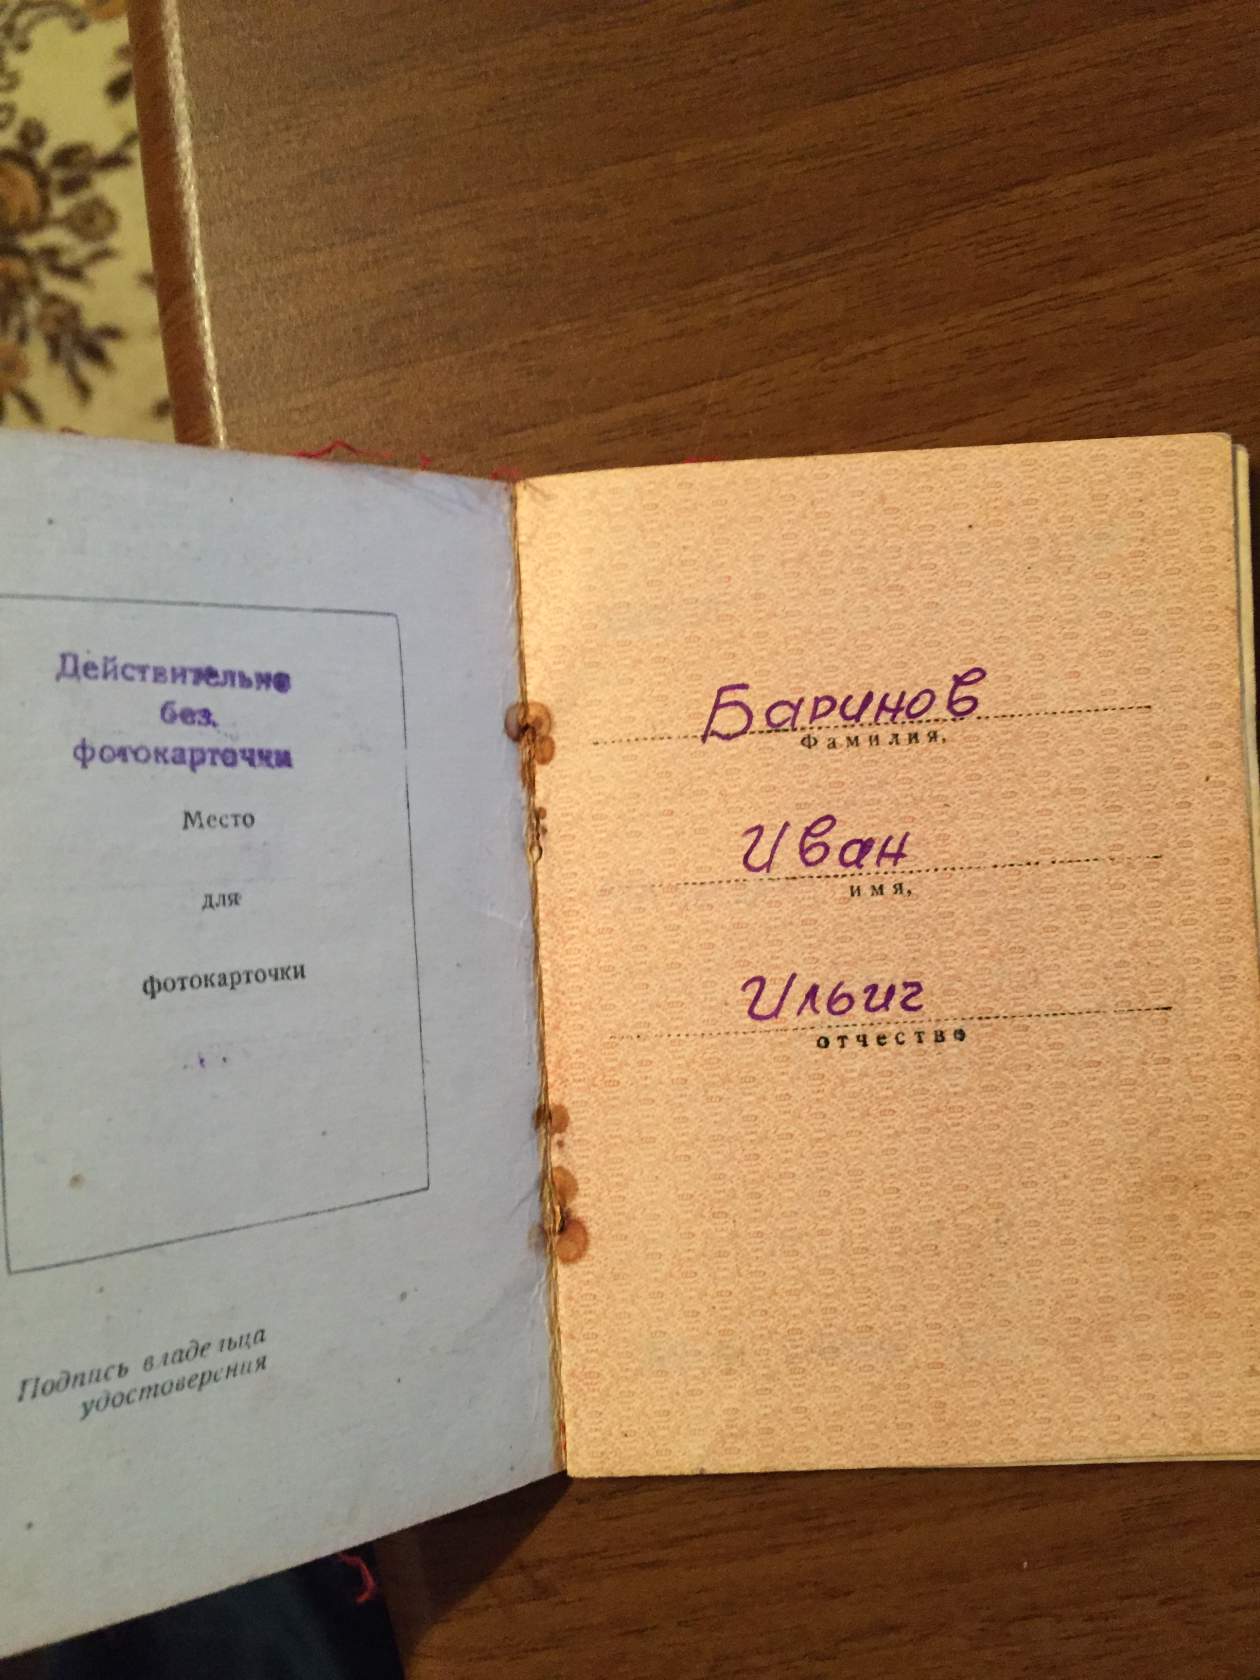 Действительно
без
фотокарточки
Место
для
фотокарточки
Подпись владельца
удостоверения
Баринов
Фамилия,
Иван
имя,
Ильич
отчество